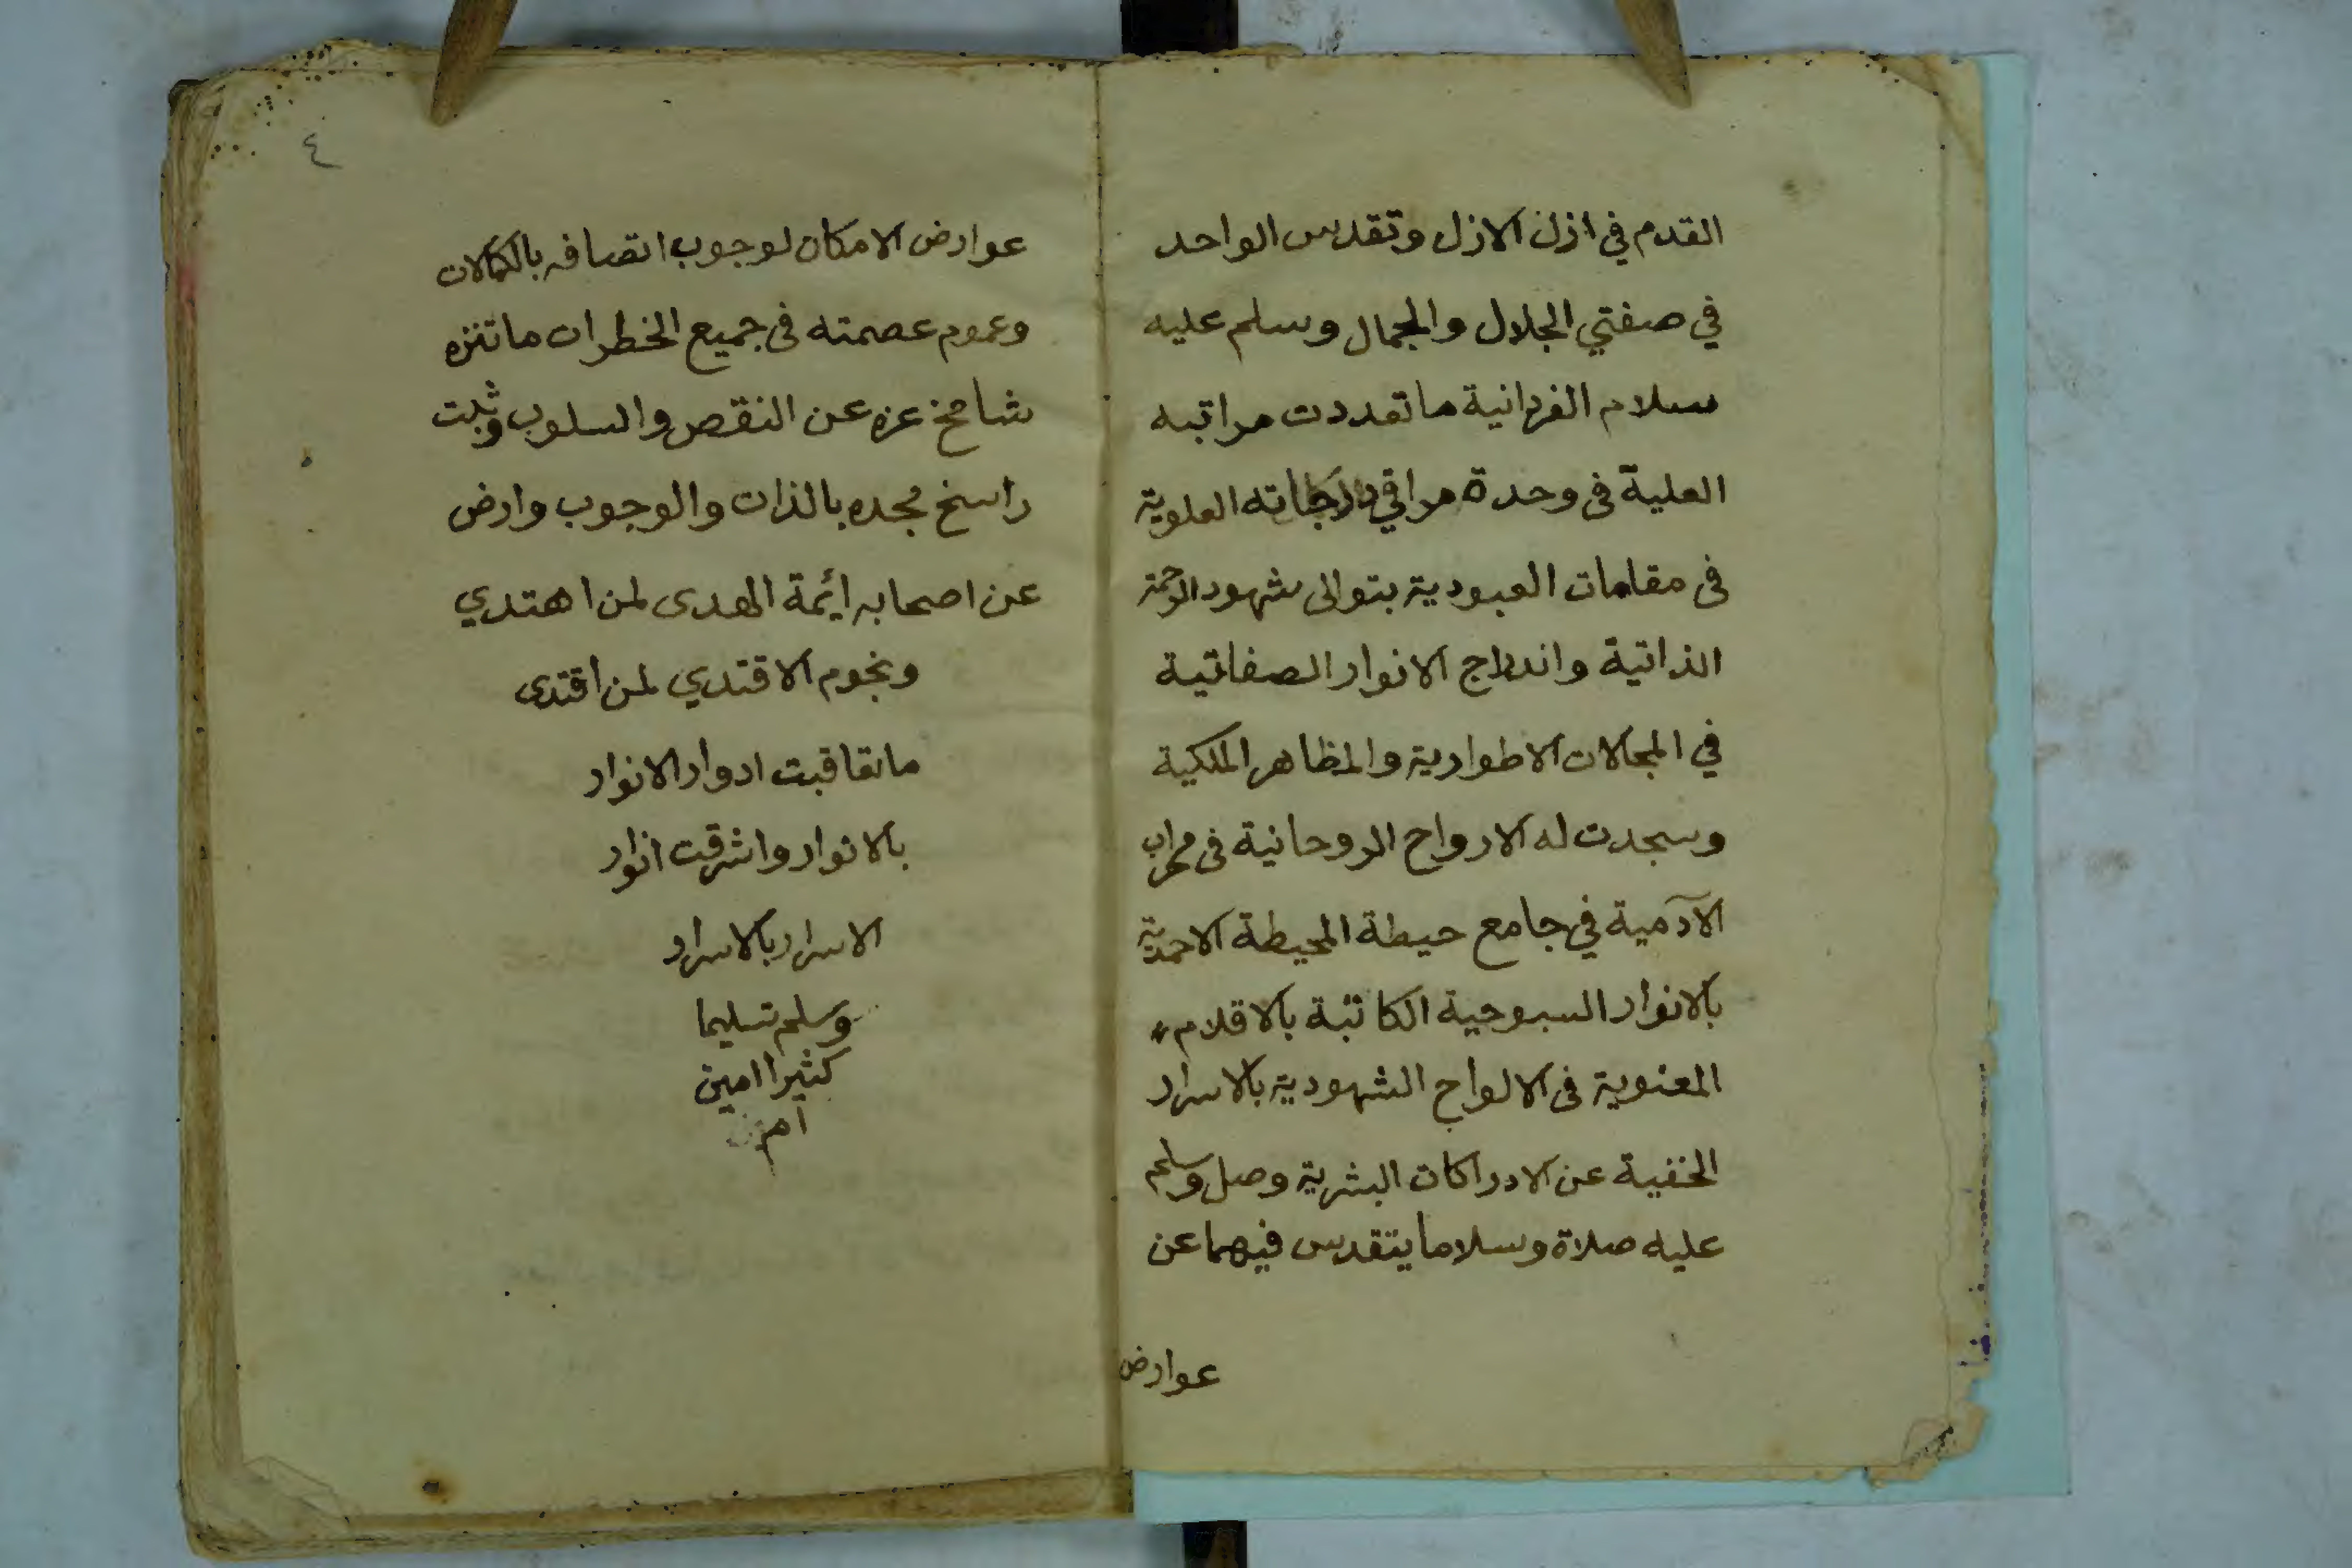 القدم في ازل الازل وتقدس الواحد
في صفتي الجلال والجمال وسلم عليه
سلام الفردانية ما تعددت مراتبه
العلية فى وحدة مراقي درجاته العلوية
فى مقامات العبودية بتوالى شهود الرحمة
الذاتية واندراج الانوار الصفاتية
في المجالات الاطوارية والمظاهر الملكية
وسجدت له الارواح الروحانية فى محراب
الآدمية في جامع حيطة المحيطة الاحمدية
بالانوار السبوحية الكاتبة بالاقلام
المعنوية فى الالواح الشهودية بالاسرار
الخفية عن الادراكات البشرية وصل وسلم
عليه صلاة وسلاما يتقدس فيهما عن
عوارض
٤
عوارض الامكان لوجوب اتصافه بالكمالات
وعموم عصمته فى جميع الخطرات ما تنزه
شامخ عزه عن النقص والسلوب وثبت
راسخ مجده بالذات والوجوب وارض
عن اصحابه ائمة الهدى لمن اهتدي
ونجوم الاقتدي لمن اقتدى
ما تعاقبت ادوار الانوار
بالانوار واشرقت انوار
الاسرار بالاسرار
وسلم تسليما
كثيرا امين